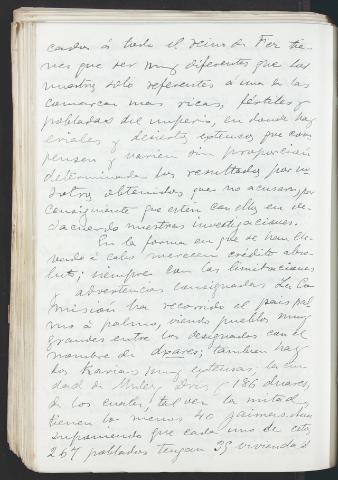 cados á todo el reino de Fez tie-
nen que ser muy diferentes que los
nuestros sólo referentes á una de las
comarcas mas ricas, fértiles y
pobladas del imperio, en donde hay
eriales y desiertos extensos que com
pensen y varien sin proporción
determinada los resultados por no
sotros obtenidos que no acusan, por
consiguiente que esten con ellos en de-
sacuerdo nuestras investigaciones.
En la forma en que se han lle-
vado á cabo merecen crédito abso-
luto; siempre con las limitaciones
y advertencias consignadas. La Co
misión ha recorrido el pais pal
mo á palmo, viendo pueblos muy
grandes entre los designados con el
nombre de dxares; tambien hay
los muy extensos; la ciu
dad de Muley Dris y 186 duares,
de los cuales, tal vez la mitad,
tienen lo menos 40 jaimas. Aun
suponiendo que cada uno de estos
267 poblados tengan 35 viviendas